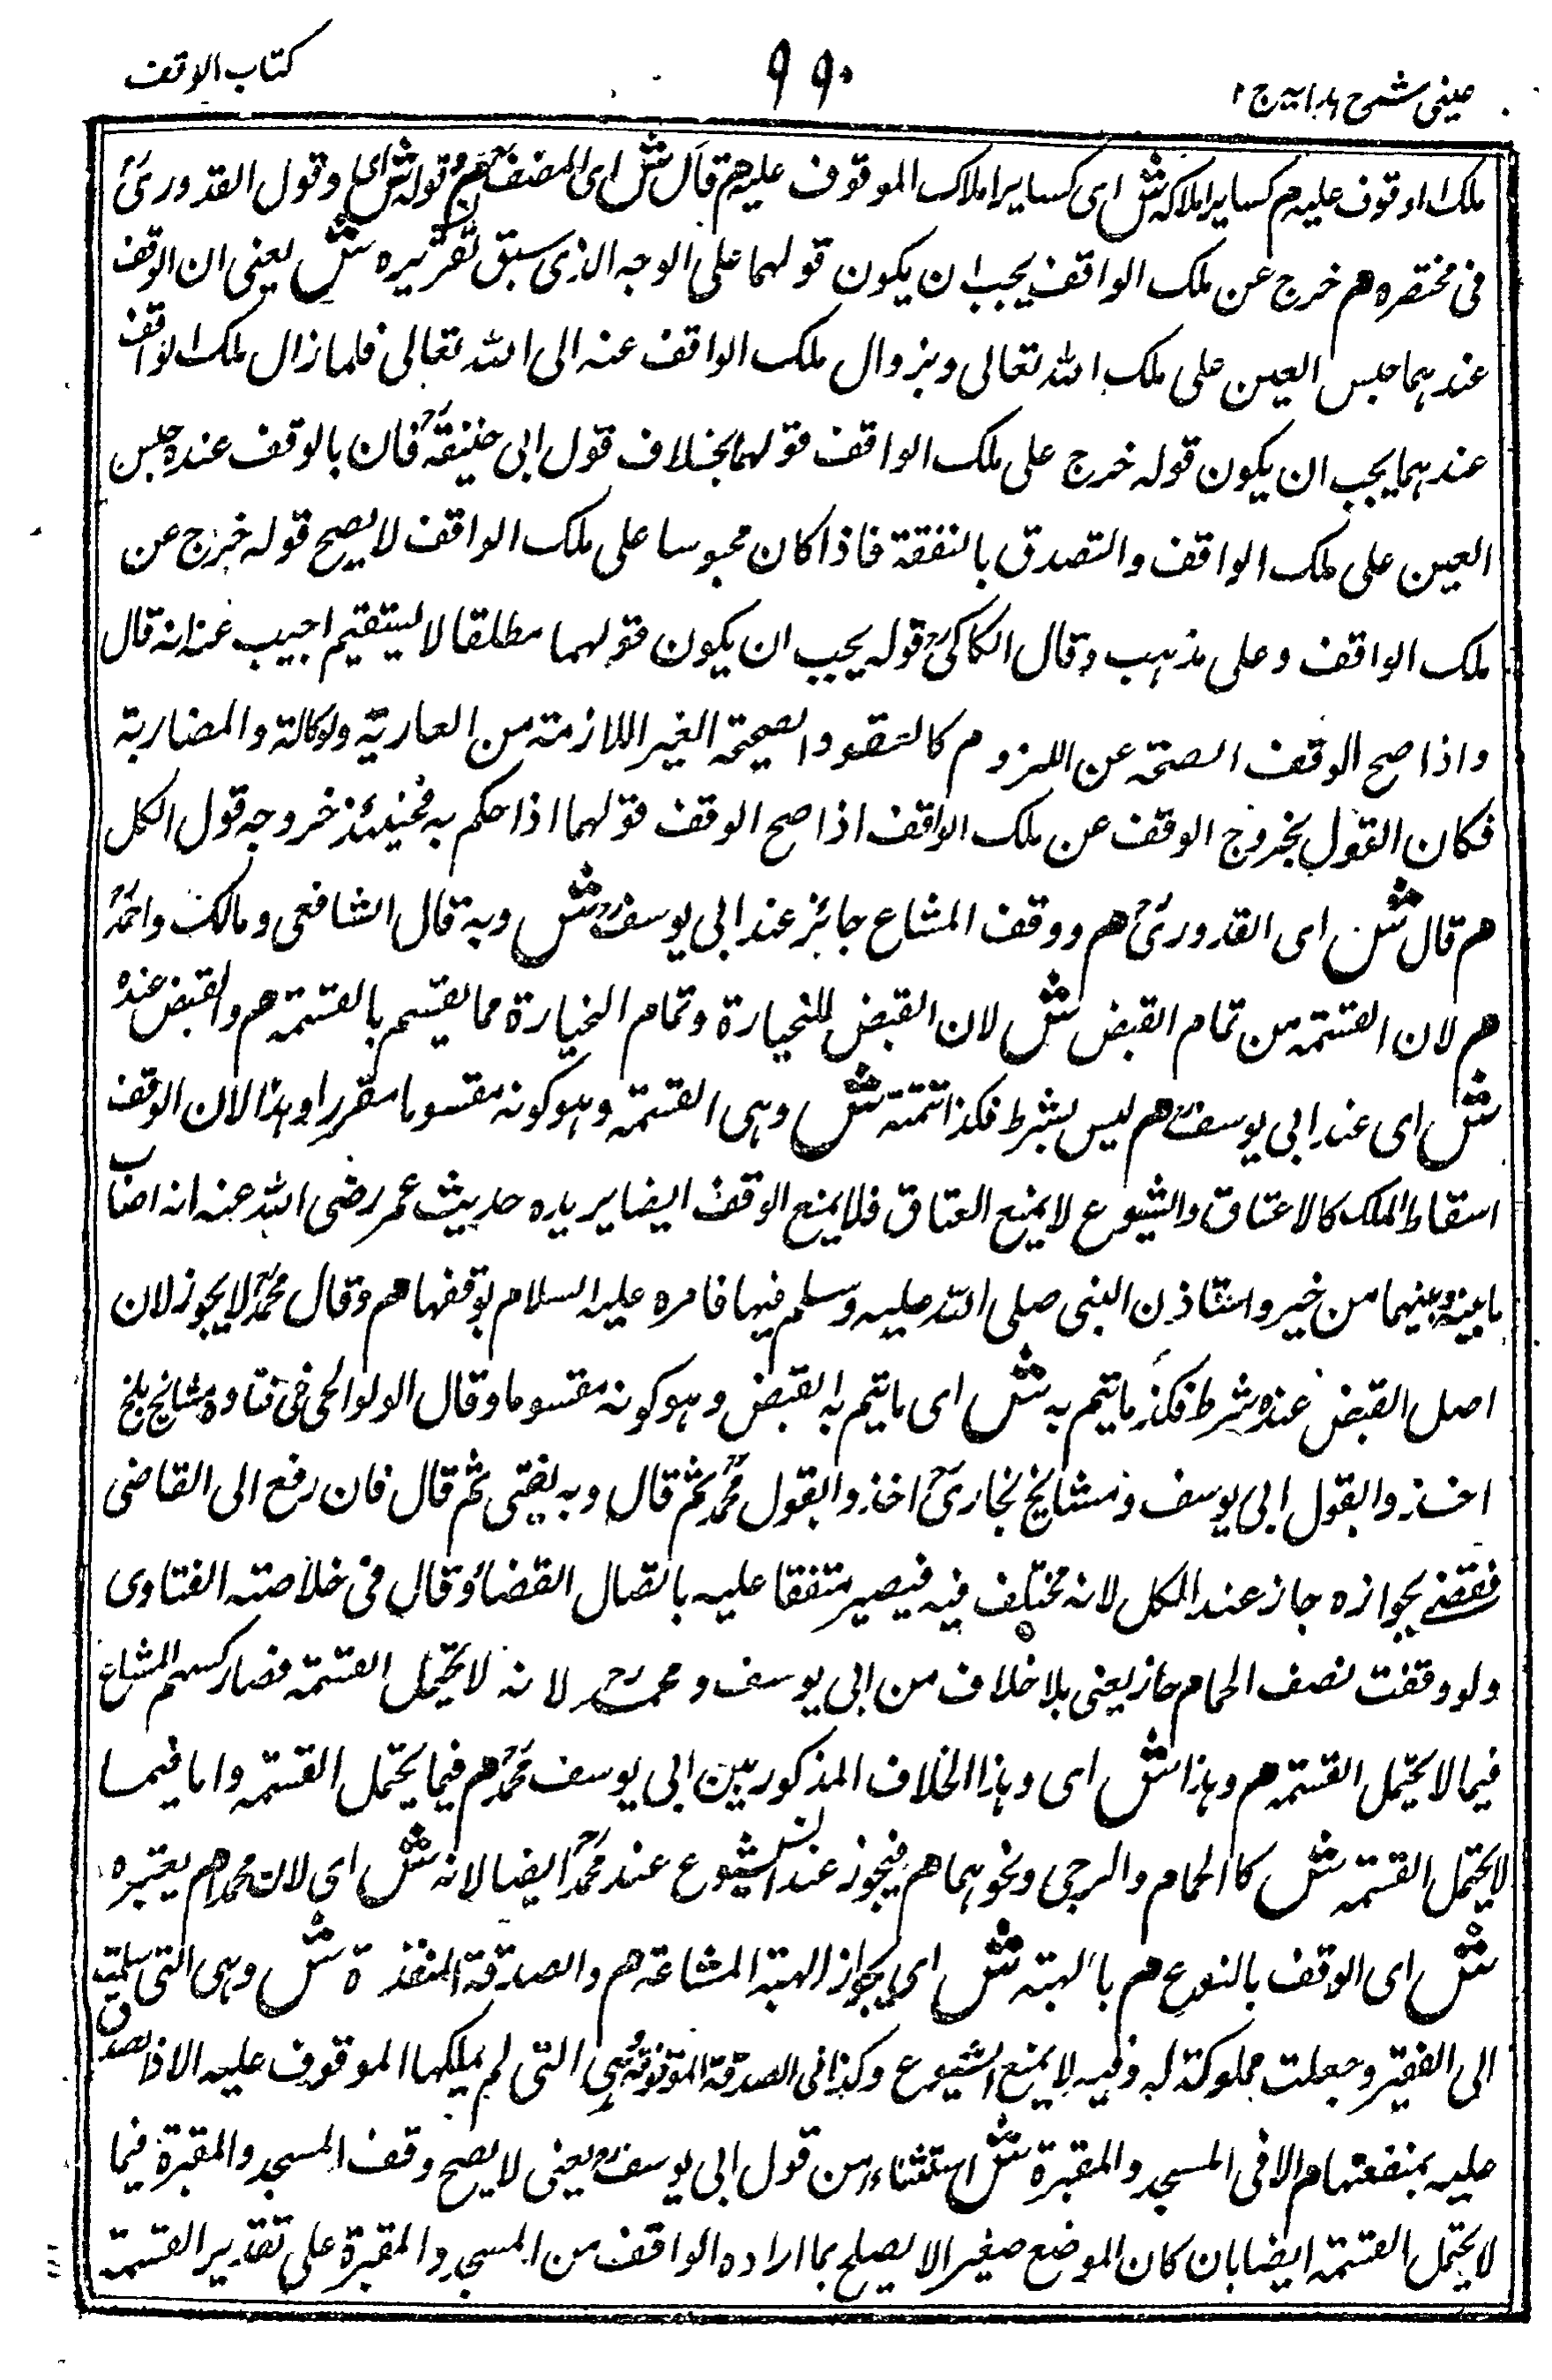 عینی شرح ہدایہ ج ۲
۹۹۰
کتاب الوقف
ملك الموقوف عليه م كساير املاكه ش اى كساير املاك الموقوف عليه م قال ش اى المصنف م قوله ش اى وقول القدورىؒ
فى مختصره م خرج عن ملك الواقف يجب ان يكون قولهما على الوجه الذى سبق تقريره ش يعنى ان الوقف
عندهما حبس العين على ملك الله تعالى وبزوال ملك الواقف عنه الى الله تعالى فلما زال ملك الواقف
عندهما يجب ان يكون قوله خرج على ملك الواقف قولهما بخلاف قول ابى حنيفةؒ فان بالوقف عنده حبس
العين على ملك الواقف والتصدق بالنفقة فاذا كان محبوسا على ملك الواقف لا يصح قوله خرج عن
ملك الواقف وعلى مذهب وقال الكاكىؒ قوله يجب ان يكون قولهما مطلقا لا يستقيم اجيب عنه انه قال
واذا صح الوقف الصحة عن اللزوم كالعقود الصحيحة الغير اللازمة من العارية ولوكالة والمضاربة
فكان القول بخروج الوقف عن ملك الواقف اذا صح الوقف قولهما اذا حكم به فحينئذ خروجه قول الكل
م قال ش اى القدورىؒ م ووقف المشاع جائز عند ابى يوسفؒ ش وبه قال الشافعى ومالك واحمدؒ
م لان القسمة من تمام القبض ش لان القبض للحيازة وتمام الحيازة مما يقسم بالقسمة م والقبض عنده
ش اى عند ابى يوسفؒ م ليس بشرط فكذا تتمته ش وهى القسمة وهو كونه مقسوما مقررا وهذا لان الوقف
اسقاط الملك كالاعتاق والشيوع لا يمنع العتاق فلا يمنع الوقف ايضا يريده حديث عمر رضى الله عنه انه اصاب
ما بينه وبينهما من خيبر واستاذن النبى صلى الله عليه وسلم فيها فامره عليه السلام بوقفها م وقال محمدؒ لا يجوز لان
اصل القبض عنده شرط فكذ ما يتم به ش اى ما يتم به القبض وهو كونه مقسوما وقال الولوالجى فى فتاوه مشايخ بلخ
اخذ والقول ابى يوسف ومشايخ بخارىؒ اخذ والقول محمدؒ ثم قال وبه يفتى ثم قال فان رفع الى القاضى
فقضى بجوازه جاز عند الكل لانه مختلف فيه فيصير متفقا عليه باتصال القضاء وقال فى خلاصة الفتاوى
ولو وقفت نصف الحمام جاز يعنى بلا خلاف من ابى يوسف ومحمدؒ لانه لا يحتمل القسمة فصار كسهم المشاع
فيما لا يحتمل القسمة م وهذا ش اى وهذا الخلاف المذكور بين ابى يوسف محمدؒ م فيما يحتمل القسمة واما فيما
لا يحتمل القسمة ش كا الحمام والرحى ونحوهما م فيجوز عند الشيوع عند محمدؒ ايضا لانه ش اى لان محمدا م يعتبره
ش اى الوقف بالنوع م بالهبة ش اى بجواز الهبة المشاعة م والصدقة المنفذة ش وهى التى سلمت
الى الفقير وجعلت مملوكة له وفيه لا يمنع الشيوع وكذا فى الصدقة الموقوفة هى التى لم يملكها الموقوف عليه الا اذا تصدق
عليه بمنفعتها م الا فى المسجد والمقبرة ش استثناء من قول ابى يوسفؒ يعنى لا يصح وقف المسجد والمقبرة فيما
لا يحتمل القسمة ايضا بان كان الموضع صغير الا يصلح بما اراده الواقف من المسجد والمقبرة على تقدير القسمة